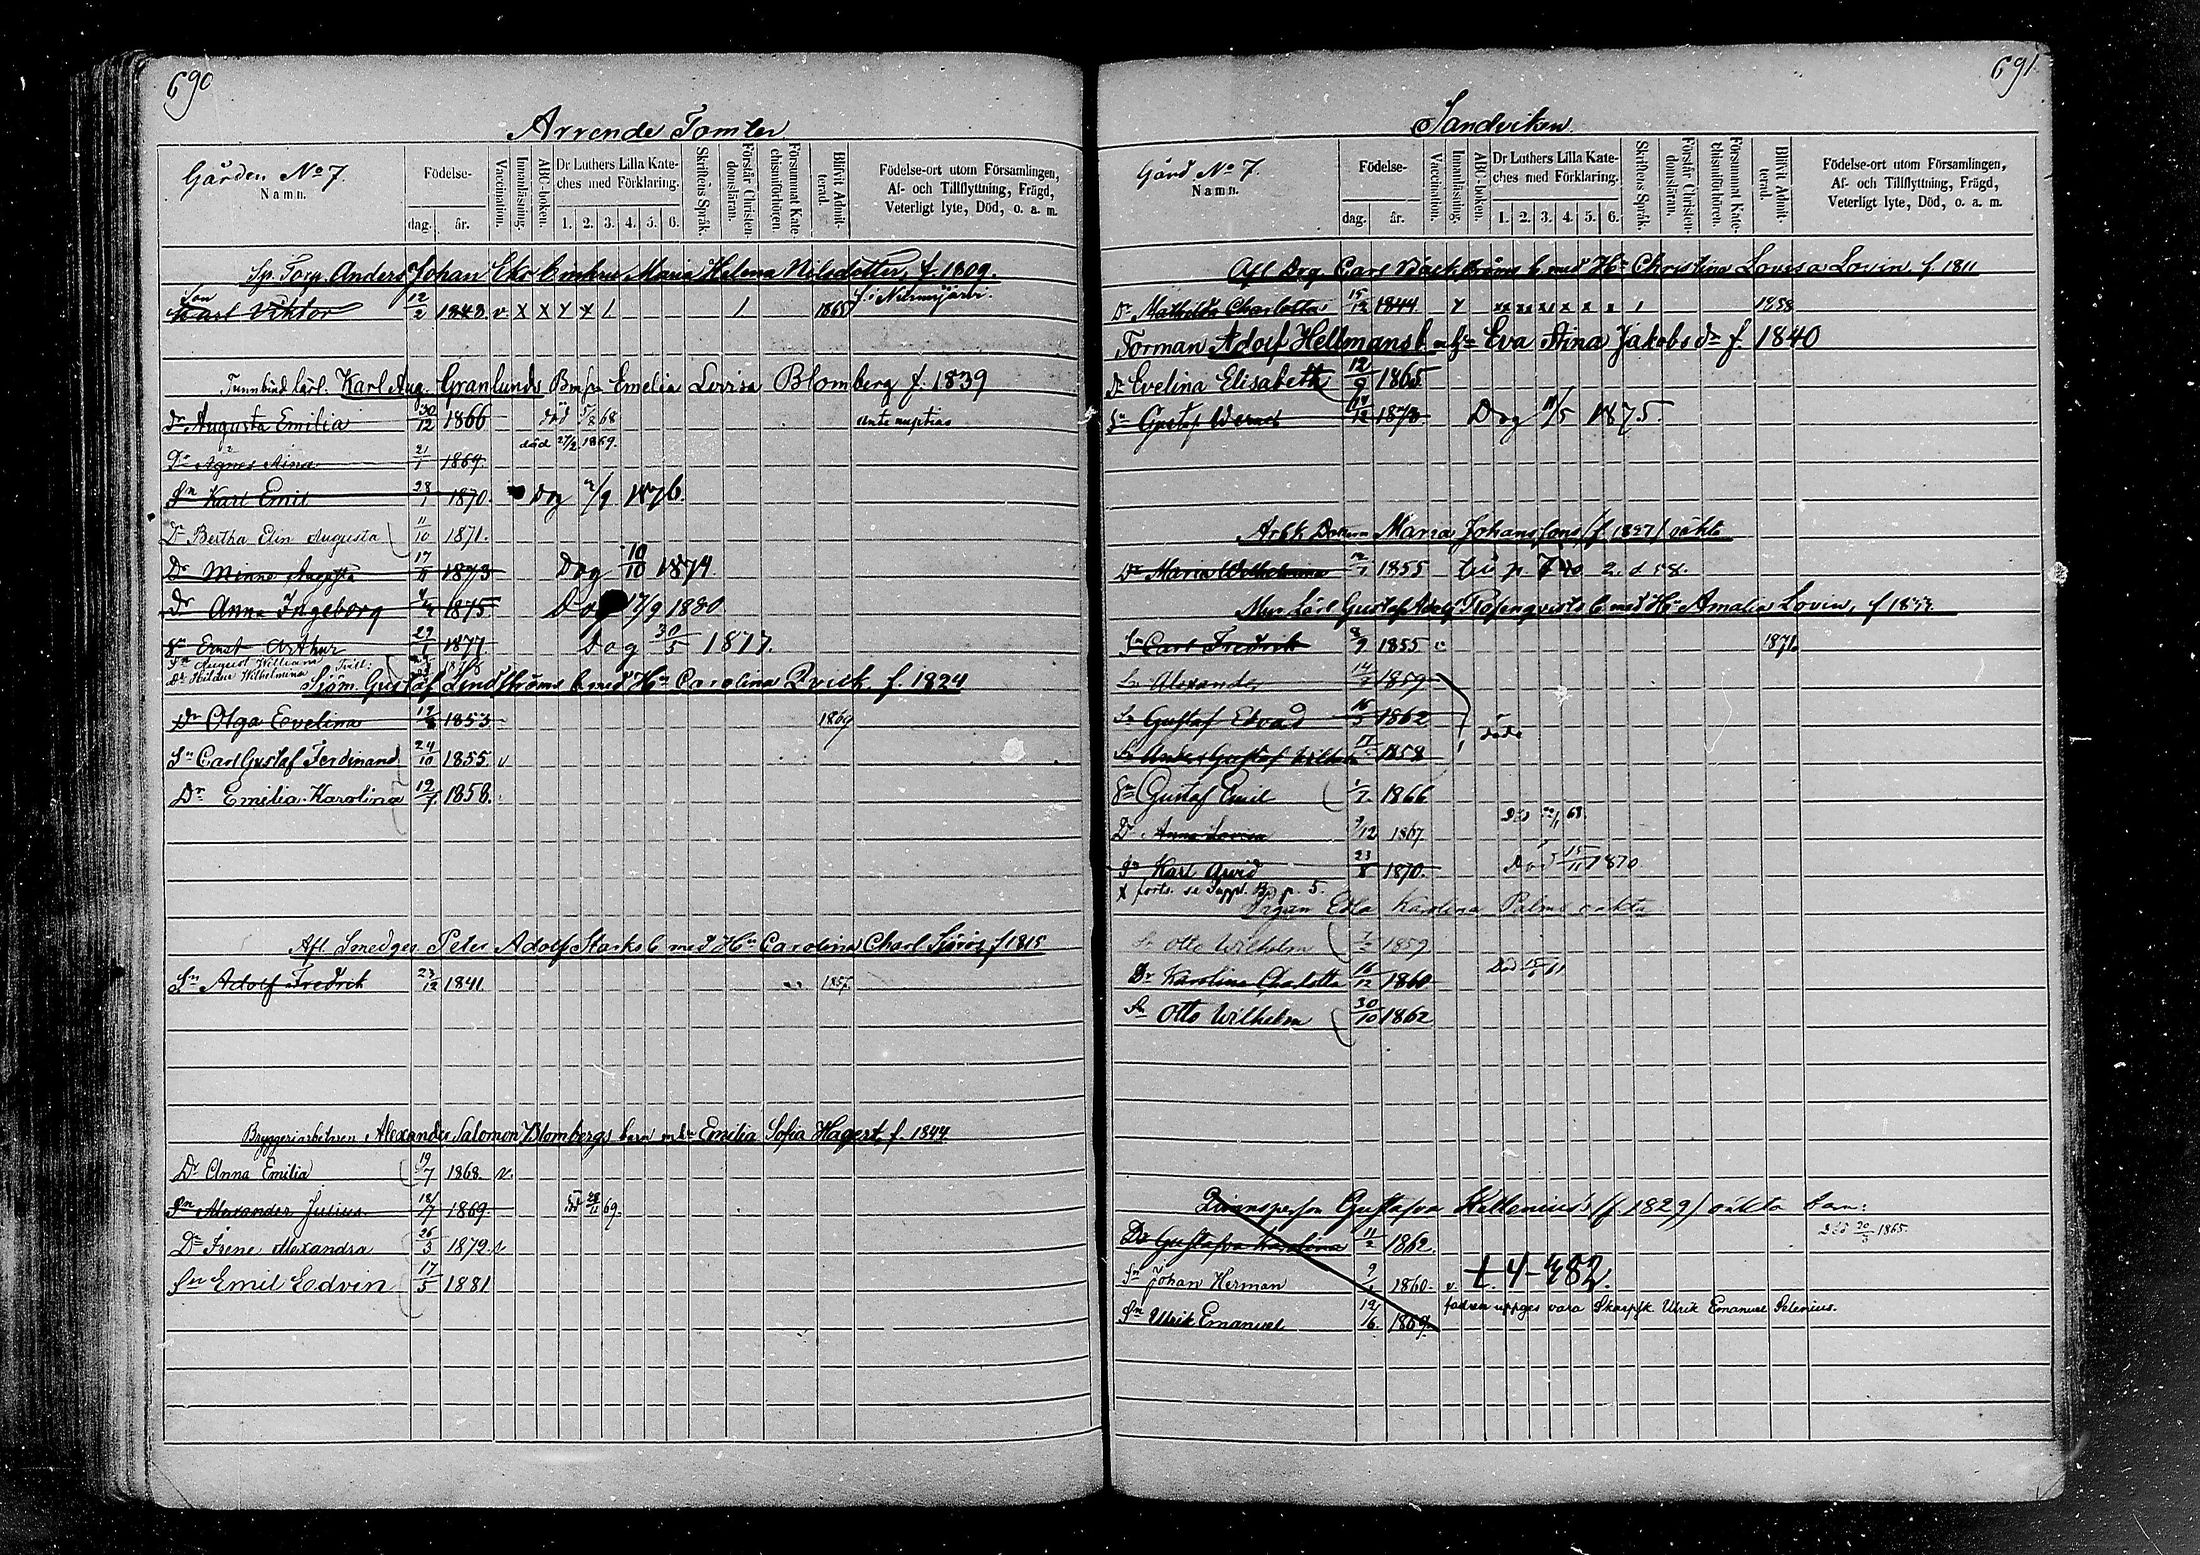 690
Arrende Tomter
Gården No 7.
Namn.
Födelse-
dag. år.
Vaccination.
Innanläsning.
ABC-boken.
Dr Luthers Lilla Kate-
ches med Förklaring.
1. 2. 3. 4. 5. 6.
Skriftens Språk.
Förstår Christen-
domsläran.
Försummat Kate-
chismiförhören.
Blifvit Admit-
terad.
Födelse-ort utom Församlingen,
Af- och Tillflyttning, Frägd,
Veterligt lyte, Död, o. a. m.
Anders Johan Maria Helena Nilsdotter, f. 1809.
Son Karl Viktor 12/2 1843 v X X 1865
Karl Aug. Granlunds Emelia Lovisa Blomberg f. 1839
Dr Augusta Emilia 30/12 1866 död 5/8 68 ante nuptias
Dr Agnes Aina 21/1 1869. död 27/2 1869.
Sn Karl Emil 28/1 1870. Dog 1876.
Dr Bertha Elin Augusta 11/10 1871.
Dr Minna Augusta 17/11 1873 Dog 10/10 1874
Dr Anna Ingeborg 1875 Dog 17/9 1880
Sn Ernst Arthur 29/1 1877 Dog 30/5 1877.
Sn August William
Dr Hilda Wilhelmina
Sjöm. Gustaf Lindströms b med Hu Carolina Qvick. f. 1824
Dr Olga Evelina 1853 1869
Sn Carl Gustaf Ferdinand 24/10 1855 v
Dr Emilia Karolina 19/7 1858.
Afl. Smedges. Peter Adolf Starks b med Hu Carolina Charl f 1815
Sn Adolf Fredrik 23/12 1841.
Bryggeriarbetaren Alexander Salomon Blombergs barn Emilia Sofia Hagert f. 1844
Dr Anna Emilia 19/7 1868. v.
Sn Alexander Julius 18/7 1869 död 28/11 69.
Dr Irene Alexandra 26/3 1872. v
Sn Emil Edvin 17/5 1881
691
Sandviken.
Gård No 7.
Namn.
Födelse-
dag. år.
Vaccination.
Innanläsning.
ABC-boken.
Dr Luthers Lilla Kate-
ches med Förklaring.
1. 2. 3. 4. 5. 6.
Skriftens Språk.
Förstår Christen-
domsläran.
Försummat Kate-
chismiförhören.
Blifvit Admit-
terad.
Födelse-ort utom Församlingen,
Af- och Tillflyttning, Frägd,
Veterligt lyte, Död, o. a. m.
Afl Drg. Carl Bäckströms b med Hu Christina Lovisa Lovin. f 1811
Dr Mathilda Charlotta 15/12 1844 1858
Forman Adolf Hellmans b Eva Aina Jakobsdr f. 1840
Dr Evelina Elisabeth 12/9 1865
Sn Gustaf Werner 1873 Dog 11/5 1875.
Maria Johanssons oäkta
Dr Maria Wilhelmina 1855
Gustaf Adolf Rosenqvists b med Hu Amalia Lovin,
Sn Carl Fredrik 8/9 1855 1871.
Sn Alexander 1859
Sn Gustaf Edvard 1862 döda
Sn Anders Gustaf Wilhelm 1858
Sn Gustaf Emil 1866
Dr Anna Lovisa 9/12 1867 68.
Sn Karl Arvid 23/8 1870. Död 15/11 1870
x forts. se Suppl. Bd p. 5.
Pigan Edla Karolina Palms oäkta
Sn Otto Wilhelm 1859
Dr Karolina Charlotta 16/12 1860 Död 61
Sn Otto Wilhelm 30/10 1862
Gustafva Kallenius's (f. 1829) oäkta barn:
Dr Gustafva Karolina 11/2 1862. Död 20/3 1865
Sn Johan Herman 1860. v
Sn Ulrik Emanuel 12/6 1869. fadren uppges vara Skarpsk Ulrik Emanuel Selenius.